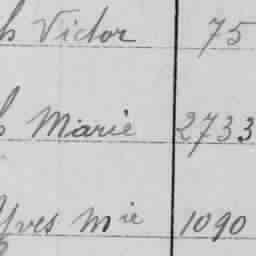 h Victor 75
h Marie 2733
Yves Mie 1090